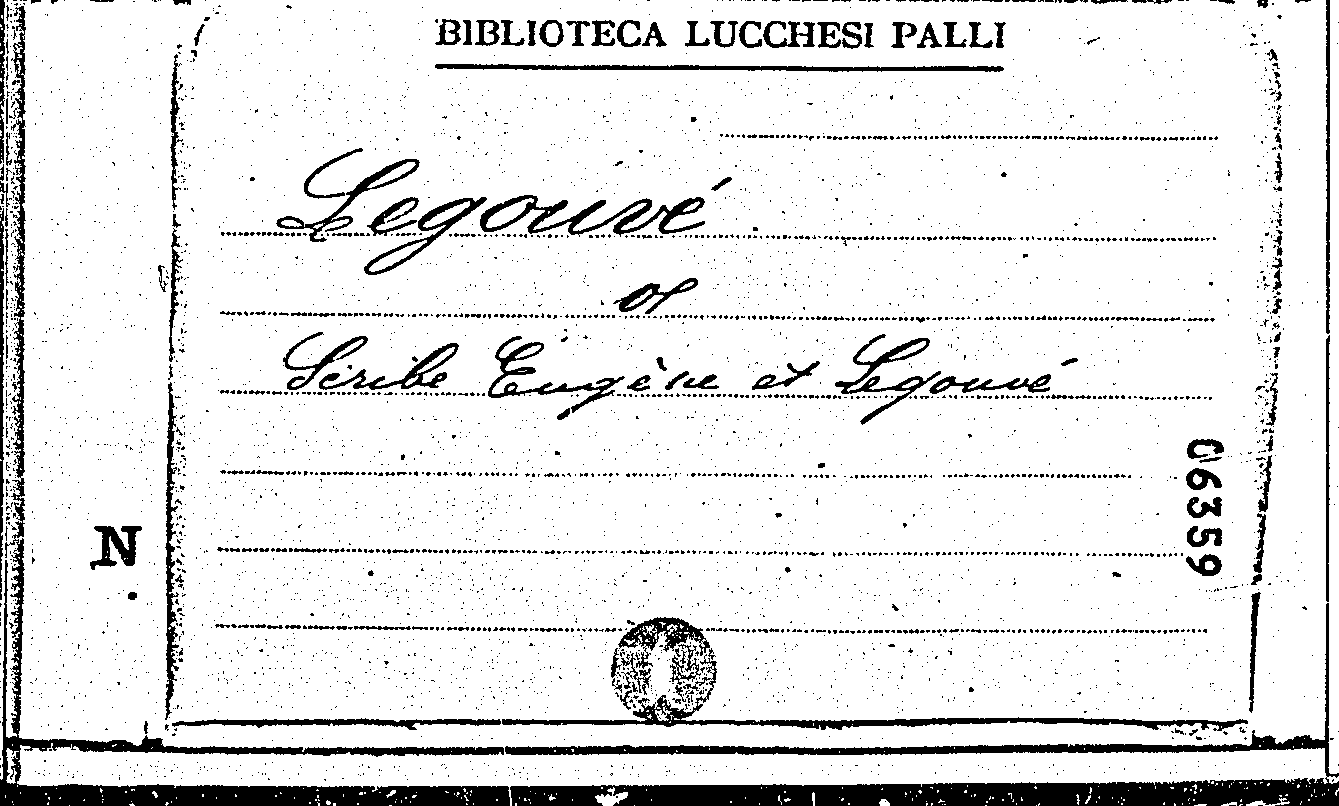 BIBLIOTECA LUCCHESI PALLI
Legouvé
Scribe Eugène et Legouvé
06359
N